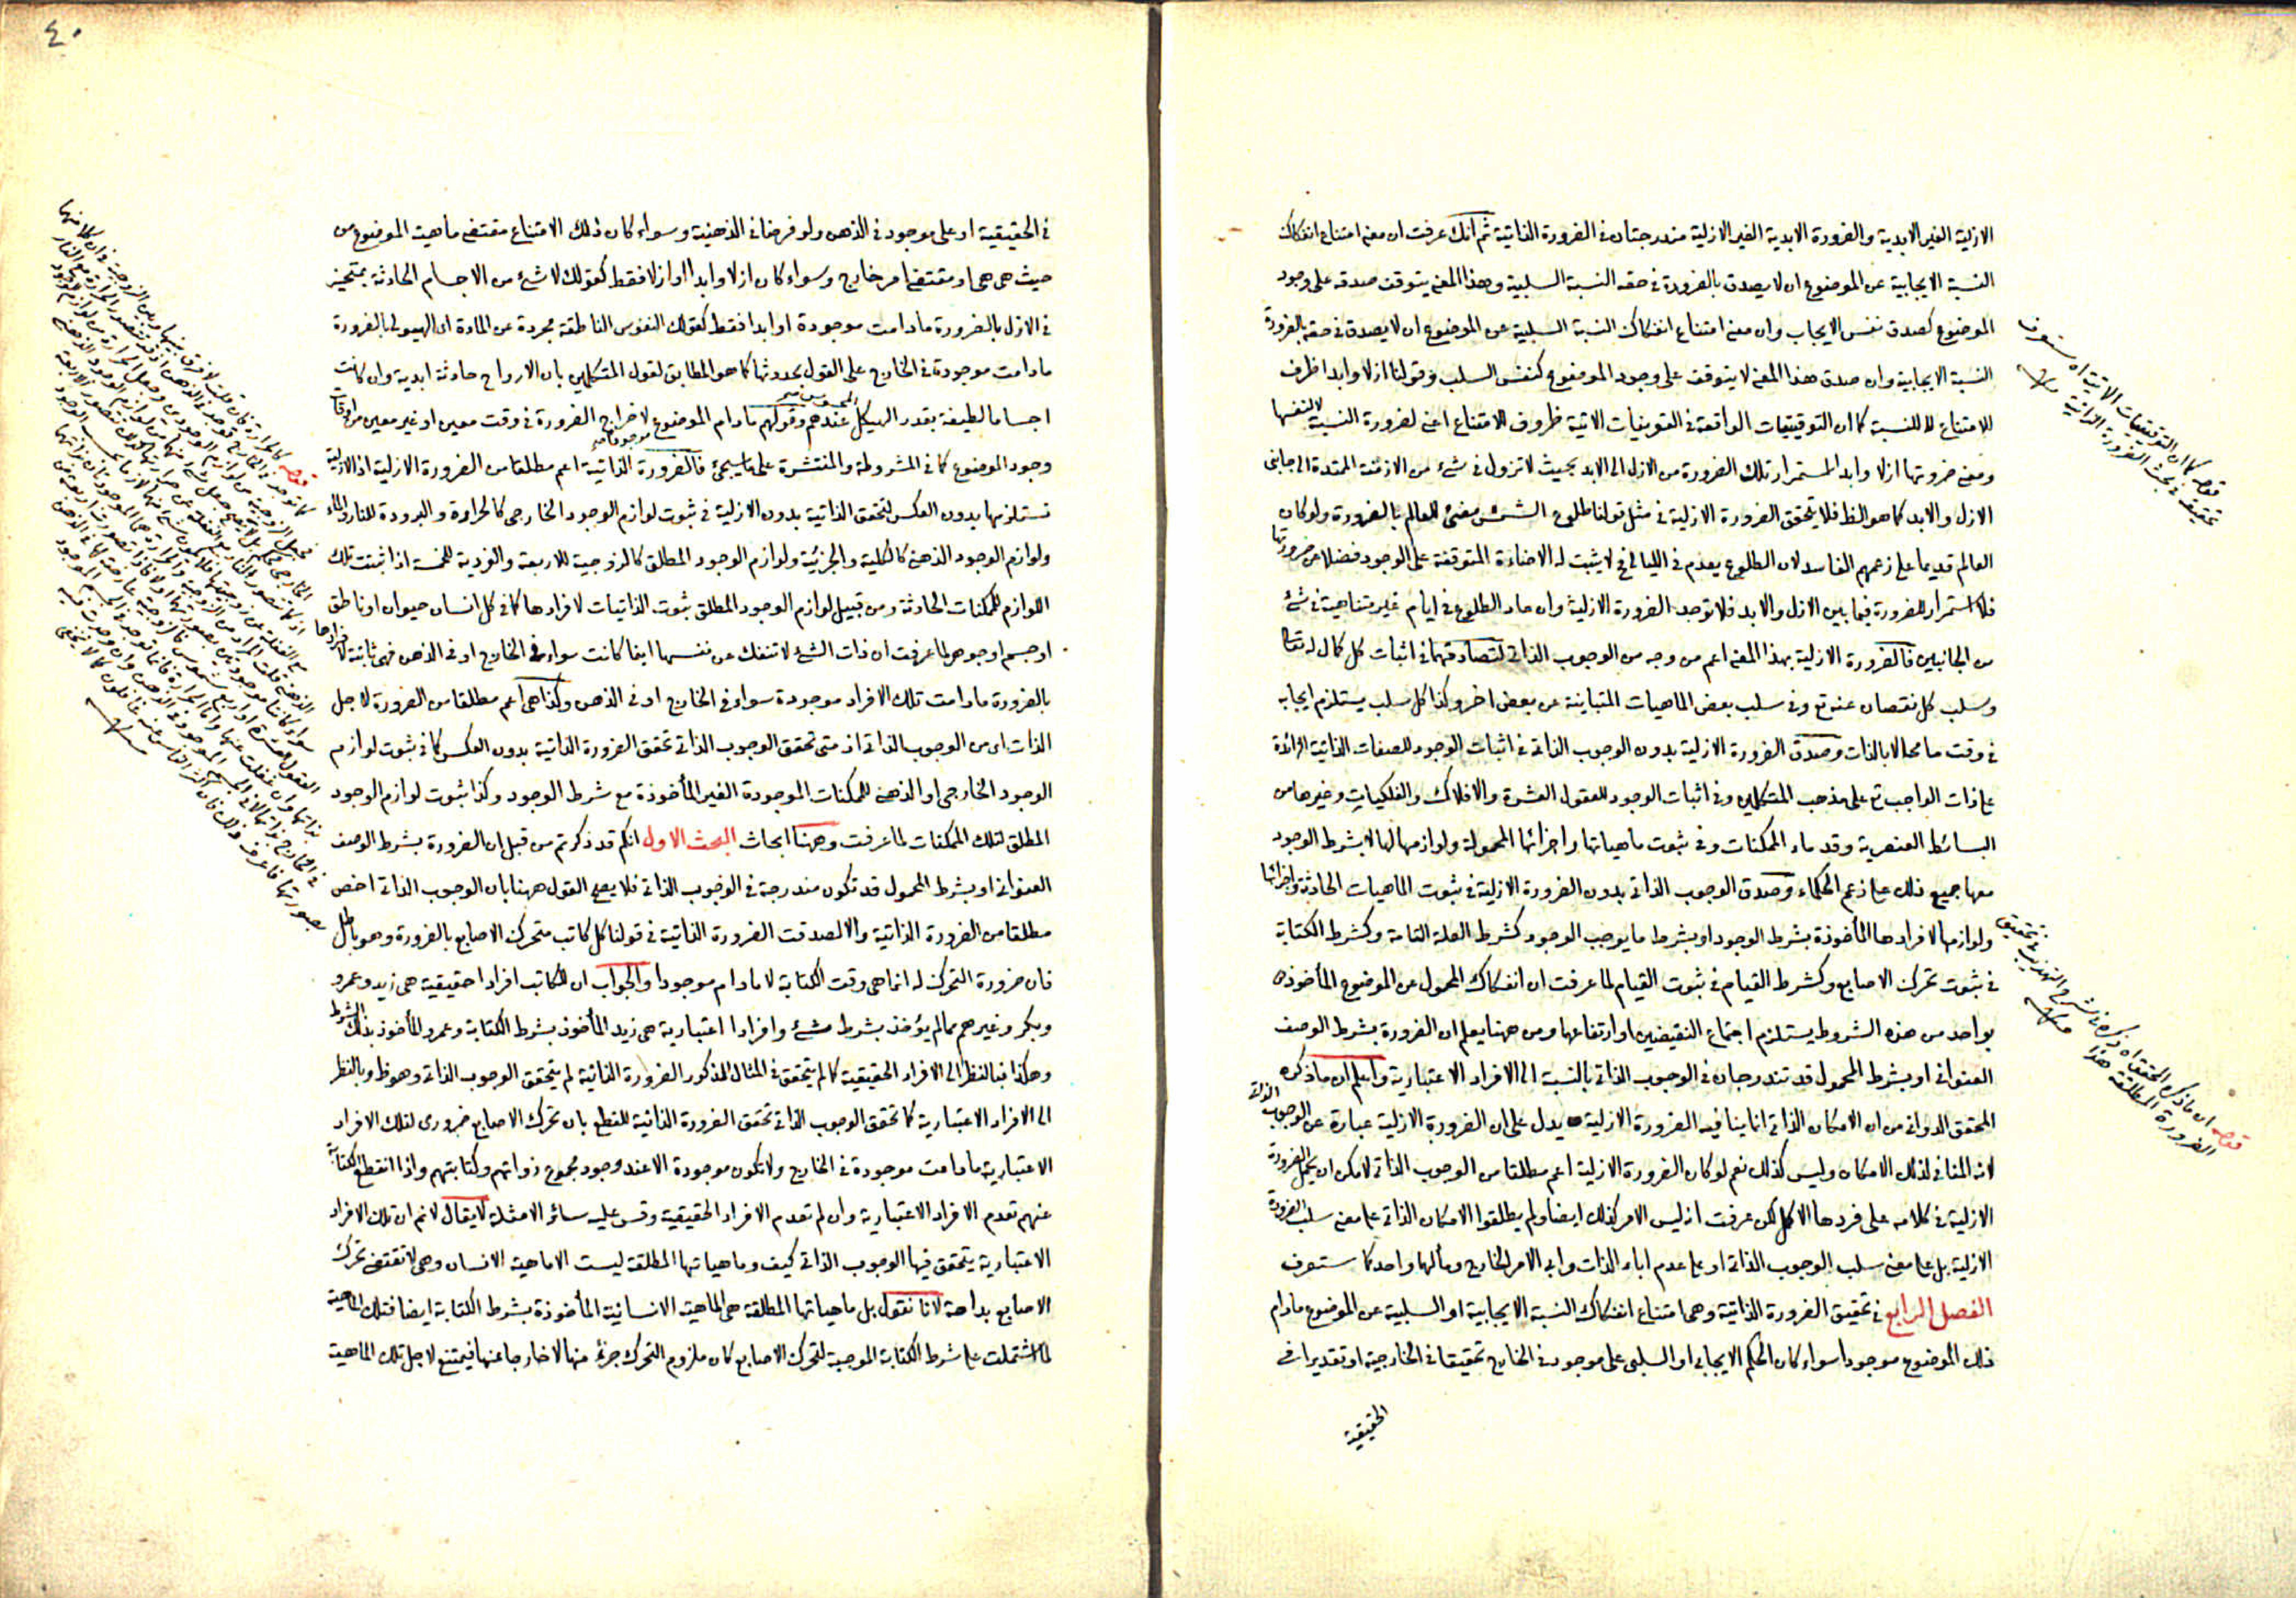 الازلية الغير الابدية والضرورة الابدية الغير الازلية مندرجتان في الضرورة الذاتية ثم انك عرفت ان معنى امتناع انفكاك
النسبة الايجابية عن الموضوع ان لا يصدق بالضرورة في حقه النسبة السلبية وهذا المعنى يتوقف صدقه على وجود
الموضوع كصدق نفس الايجاب وان معنى امتناع انفكاك النسبة السلبية عن الموضوع ان لا يصدق في حقه بالضرورة
النسبة الايجابية وان صدق هذا المعنى لا يتوقف على وجود الموضوع كنفس السلب وقولنا ازلا وابدا ظرف
للامتناع لا للنسبة كما ان التوقيتات الواقعة في التعريفات الاتية ظروف الامتناع اعني لضرورة النسبة لا لنفسها
ومعنى ضرورتها ازلا وابدا استمرار تلك الضرورة من الازل الى الابد بحيث لا تزول في شيء من الازمنة الممتدة الى جانبي
الازل والابد كما هو الظ فلا يتحقق الضرورة الازلية في مثل قولنا طلوع الشمس مضيئ للعالم بالضرورة ولو كان
العالم قديما على زعمهم الفاسد لان الطلوع يعدم في الليالي فلا يثبت له الاضاءة المتوقفة على الوجود فضلا عن ضرورتها
فلا استمرار للضرورة فيما بين الازل والابد فلا توجد الضرورة الازلية وان عاد الطلوع في ايام غير متناهية في شيء
من الجانبين فالضرورة الازلية بهذا المعنى اعم من وجه من الوجوب الذاتي لتصادقهما في اثبات كل كمال له تعالى
وسلب كل نقصان عنه تع وفي سلب بعض الماهيات المتباينة عن بعض اخر وكذا كل سلب يستلزم ايجابه
في وقت ما محالا بالذات وصدق الضرورة الازلية بدون الوجوب الذاتي في اثبات الوجود للصفات الذاتية الزائدة
على ذات الواجب تع على مذهب المتكلمين وفي اثبات الوجود للعقول العشرة والافلاك والفلكيات وغيرها من
البسائط العنصرية وقدماء الممكنات وفي ثبوت ماهياتها واجزائها المحمولة ولوازمها لها لا بشرط الوجود
معها جميع ذلك على زعم الحكماء وصدق الوجوب الذاتي بدون الضرورة الازلية في ثبوت الماهيات الحادثة واجزائها
ولوازمها لافرادها المأخوذة بشرط الوجود او بشرط ما يوجب الوجود كشرط العلة التامة وكشرط الكتابة
في ثبوت تحرك الاصابع وكشرط القيام في ثبوت القيام لما عرفت ان انفكاك المحمول عن الموضوع المأخوذ
بواحد من هذه الشروط يستلزم اجتماع النقيضين او ارتفاعهما ومن ههنا يعلم ان الضرورة بشرط الوصف
العنواني او بشرط المحمول قد تندرجان في الوجوب الذاتي بالنسبة الى الافراد الاعتبارية واعلم ان ما ذكره
المحقق الدواني من ان الامكان الذاتي انما ينافيه الضرورة الازلية يدل على ان الضرورة الازلية عبارة عن الوجوب الذاتي
لانه المنافي لذلك الامكان وليس كذلك نعم لو كان الضرورة الازلية اعم مطلقا من الوجوب الذاتي لامكن ان يحمل الضرورة
الازلية في كلامه على فردها الاكمل لكن عرفت انه ليس الامر كذلك ايضا ولم يطلقوا الامكان الذاتي على معنى سلب الضرورة
الازلية بل على معنى سلب الوجوب الذاتي او على عدم اباء الذات وابى الامر الخارج ومآلهما واحد كما ستعرف
الفصل الرابع في تحقيق الضرورة الذاتية وهي امتناع انفكاك النسبة الايجابية او السلبية عن الموضوع مادام
ذات الموضوع موجودا سواء كان الحكم الايجابي او السلبي على موجود في الخارج تحقيقا في الخارجية او تقديرا في
الحقيقية
قوله كما ان التوقيتات الاتية اه ستعرف
تحقيقه في بحث الضرورة الوقتية منه
قوله ان ما ذكره المحقق اه ذكره في شرح التهذيب في تحقيق
الضرورة المطلقة هذا منه
٤٠
في الحقيقية او على موجود في الذهن ولو فرضا في الذهنية وسواء كان ذلك الامتناع مقتضى ماهية الموضوع من
حيث هي هي او مقتضى امر خارج وسواء كان ازلا وابدا او ازلا فقط كقولك لا شيء من الاجسام الحادثة بمتحيز
في الازل بالضرورة مادامت موجودة او ابدا فقط كقولك النفوس الناطقة مجردة عن المادة اى الهيولى بالضرورة
مادامت موجودة في الخارج على القول بحدوثها كما هو المطابق لقول المتكلمين بان الارواح حادثة ابدية وان كانت
اجساما لطيفة بقدر الهيكل المحسوس عندهم وقولهم مادام الموضوع موجودا لاخراج الضرورة في وقت معين او غير معين من اوقات
وجود الموضوع كما في المشروطة والمنتشرة على ما سيجيئ فالضرورة الذاتية اعم مطلقا من الضرورة الازلية اذ الازلية
تستلزمها بدون العكس لتحقق الذاتية بدون الازلية في ثبوت لوازم الوجود الخارجي كالحرارة والبرودة للنار والماء
ولوازم الوجود الذهني كالكلية والجزئية ولوازم الوجود المطلق كالزوجية للاربعة والفردية للخمسة اذا ثبتت تلك
اللوازم للممكنات الحادثة ومن قبيل لوازم الوجود المطلق ثبوت الذاتيات لافرادها كما في كل انسان حيوان او ناطق
او جسم او جوهر لما عرفت ان ذات الشيء لا تنفك عن نفسها اينما كانت سواء في الخارج او في الذهن فهي ثابتة لافرادها
بالضرورة مادامت تلك الافراد موجودة سواء في الخارج او في الذهن وكذا هي اعم مطلقا من الضرورة لاجل
الذات اى من الوجوب الذاتي اذ متى تحقق الوجوب الذاتي تحقق الضرورة الذاتية بدون العكس كما في ثبوت لوازم
الوجود الخارجي او الذهني للممكنات الموجودة الغير المأخوذة مع شرط الوجود وكذا ثبوت لوازم الوجود
المطلق لتلك الممكنات لما عرفت وههنا ابحاث البحث الاول انكم قد ذكرتم من قبل ان الضرورة بشرط الوصف
العنواني او بشرط المحمول قد تكون مندرجة في الوجوب الذاتي فلا يصح القول ههنا بان الوجوب الذاتي اخص
مطلقا من الضرورة الذاتية والا لصدقت الضرورة الذاتية في قولنا كل كاتب متحرك الاصابع بالضرورة وهو باطل
فان ضرورة التحرك له انما هي وقت الكتابة لا مادام موجودا والجواب ان للكاتب افرادا حقيقية هي زيد وعمرو
وبكر وغيرهم مما لم يؤخذ بشرط شيء وافرادا اعتبارية هي زيد المأخوذ بشرط الكتابة وعمرو المأخوذ بذلك الشرط
وهكذا فبالنظر الى الافراد الحقيقية كما لم يتحقق في المثال المذكور الضرورة الذاتية لم يتحقق الوجوب الذاتي وهو ظ وبالنظر
الى الافراد الاعتبارية كما تحقق الوجوب الذاتي تحقق الضرورة الذاتية للقطع بان تحرك الاصابع ضروري لتلك الافراد
الاعتبارية مادامت موجودة في الخارج ولا تكون موجودة الا عند وجود مجموع ذواتهم وكتابتهم واذا انقطع الكتابة
عنهم تعدم الافراد الاعتبارية وان لم تعدم الافراد الحقيقية وقس عليه سائر الامثلة لا يقال لانم ان تلك الافراد
الاعتبارية يتحقق فيها الوجوب الذاتي كيف وماهياتها المطلقة ليست الا ماهية الانسان وهي لا تقتضي تحرك
الاصابع بداهة لانا نقول بل ماهياتها المطلقة هي الماهية الانسانية المأخوذة بشرط الكتابة ايضا فتلك الماهية
لما اشتملت على شرط الكتابة الموجبة لتحرك الاصابع كان ملزوم التحرك جزءً منها لا خارجا عنها فيمتنع لاجل تلك الماهية